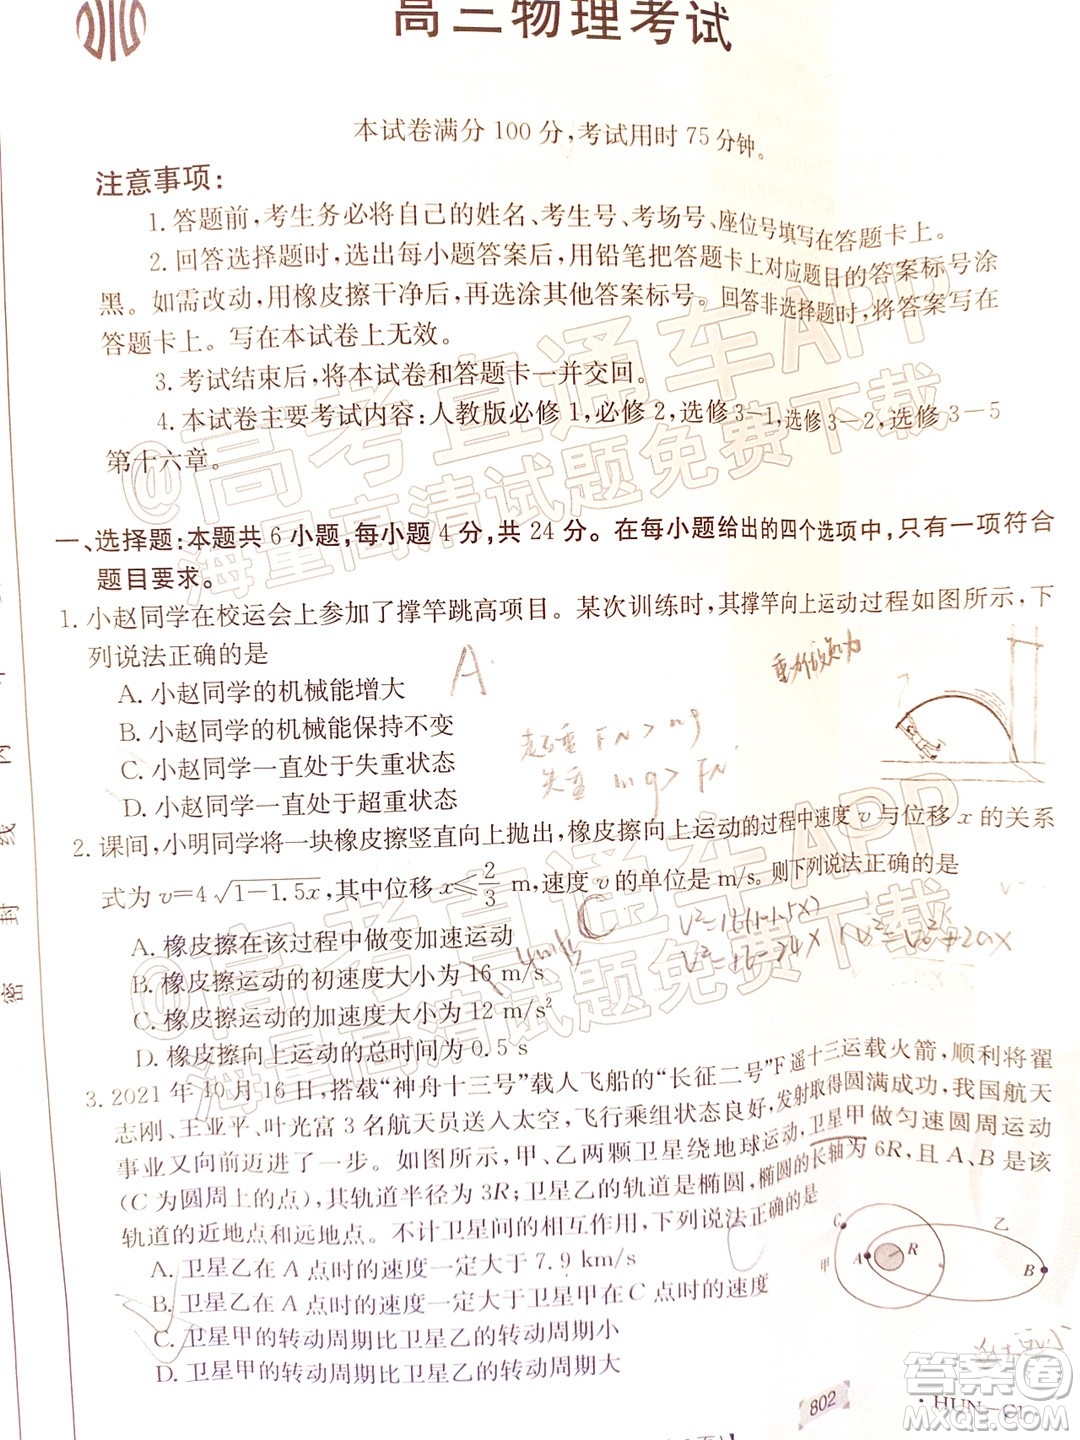 高三物理考试
本试卷满分100分,考试用时75分钟。
注意事项:
1. 答题前,考生务必将自己的姓名、考生号、考场号、座位号填写在答题卡上。
2. 回答选择题时,选出每小题答案后,用铅笔把答题卡上对应题目的答案标号涂
黑。如需改动,用橡皮擦干净后,再选涂其他答案标号。回答非选择题时,将答案写在
答题卡上。写在本试卷上无效。
3. 考试结束后,将本试卷和答题卡一并交回。
4. 本试卷主要考试内容:人教版必修1,必修2,选修3-1,选修3-2,选修3-5
第十六章。
@高考直通车APP
海量高清试题免费下载
一、选择题:本题共6小题,每小题4分,共24分。在每小题给出的四个选项中,只有一项符合
题目要求。
1. 小赵同学在校运会上参加了撑竿跳高项目。某次训练时,其撑竿向上运动过程如图所示,下
列说法正确的是
A
A. 小赵同学的机械能增大
B. 小赵同学的机械能保持不变
C. 小赵同学一直处于失重状态
D. 小赵同学一直处于超重状态
超重 FN>mg
失重 mg>FN
2. 课间,小明同学将一块橡皮擦竖直向上抛出,橡皮擦向上运动的过程中速度 v 与位移 x 的关系
式为 v=4√1-1.5x,其中位移 x≤2/3 m,速度 v 的单位是 m/s。则下列说法正确的是
C
A. 橡皮擦在该过程中做变加速运动
B. 橡皮擦运动的初速度大小为 16 m/s
4m/s
C. 橡皮擦运动的加速度大小为 12 m/s²
D. 橡皮擦向上运动的总时间为 0.5 s
v²=16(1-1.5x)
@高考直通车APP
海量高清试题免费下载
3. 2021 年 10 月 16 日,搭载“神舟十三号”载人飞船的“长征二号”F 遥十三运载火箭,顺利将翟
志刚、王亚平、叶光富 3 名航天员送入太空,飞行乘组状态良好,发射取得圆满成功,我国航天
事业又向前迈进了一步。假如甲、乙两颗卫星绕地球运动,卫星甲做匀速圆周运动
(C 为圆周上的点),其轨道半径为 3R;卫星乙的轨道是椭圆,椭圆的长轴为 6R,且 A、B 是该
轨道的近地点和远地点。不计卫星间的相互作用,下列说法正确的是
A. 卫星乙在 A 点时的速度一定大于 7.9 km/s
B. 卫星乙在 A 点时的速度一定大于卫星甲在 C 点时的速度
C. 卫星甲的转动周期比卫星乙的转动周期小
D. 卫星甲的转动周期比卫星乙的转动周期大
C
甲
A
R
乙
B
802
·HUN-G1
答案圈
MXQE.COM
密 封 线 内